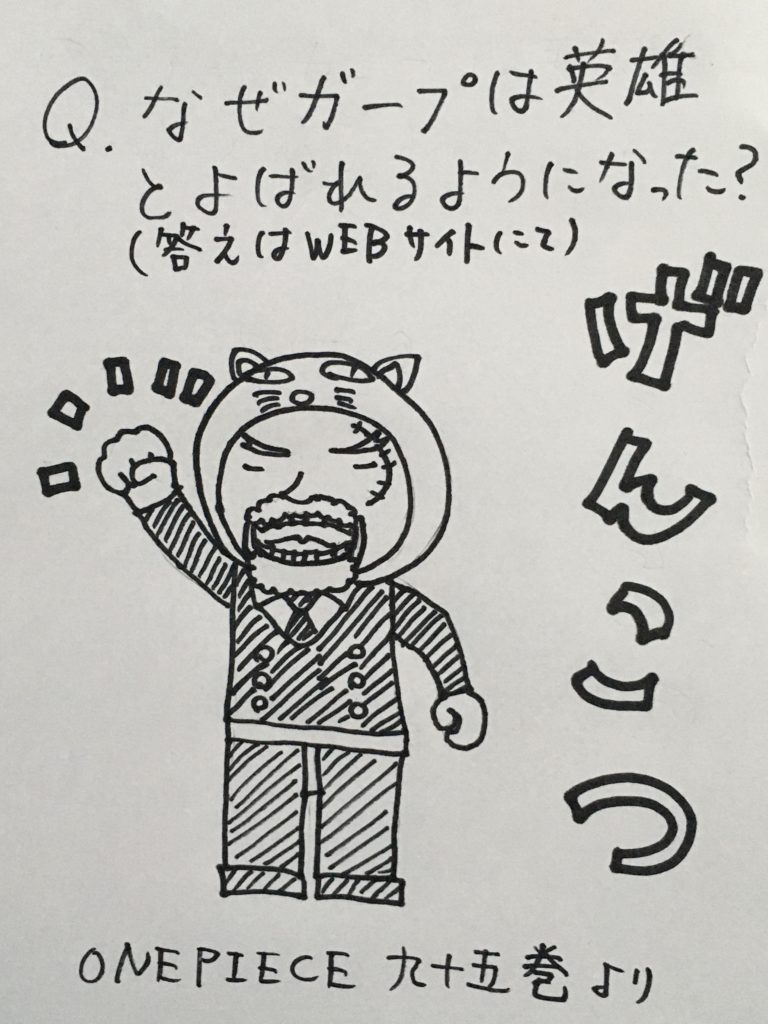 Q. なぜガープは英雄
とよばれるようになった?
(答えはWEBサイトにて)
げんこつ
ONEPIECE 九十五巻より